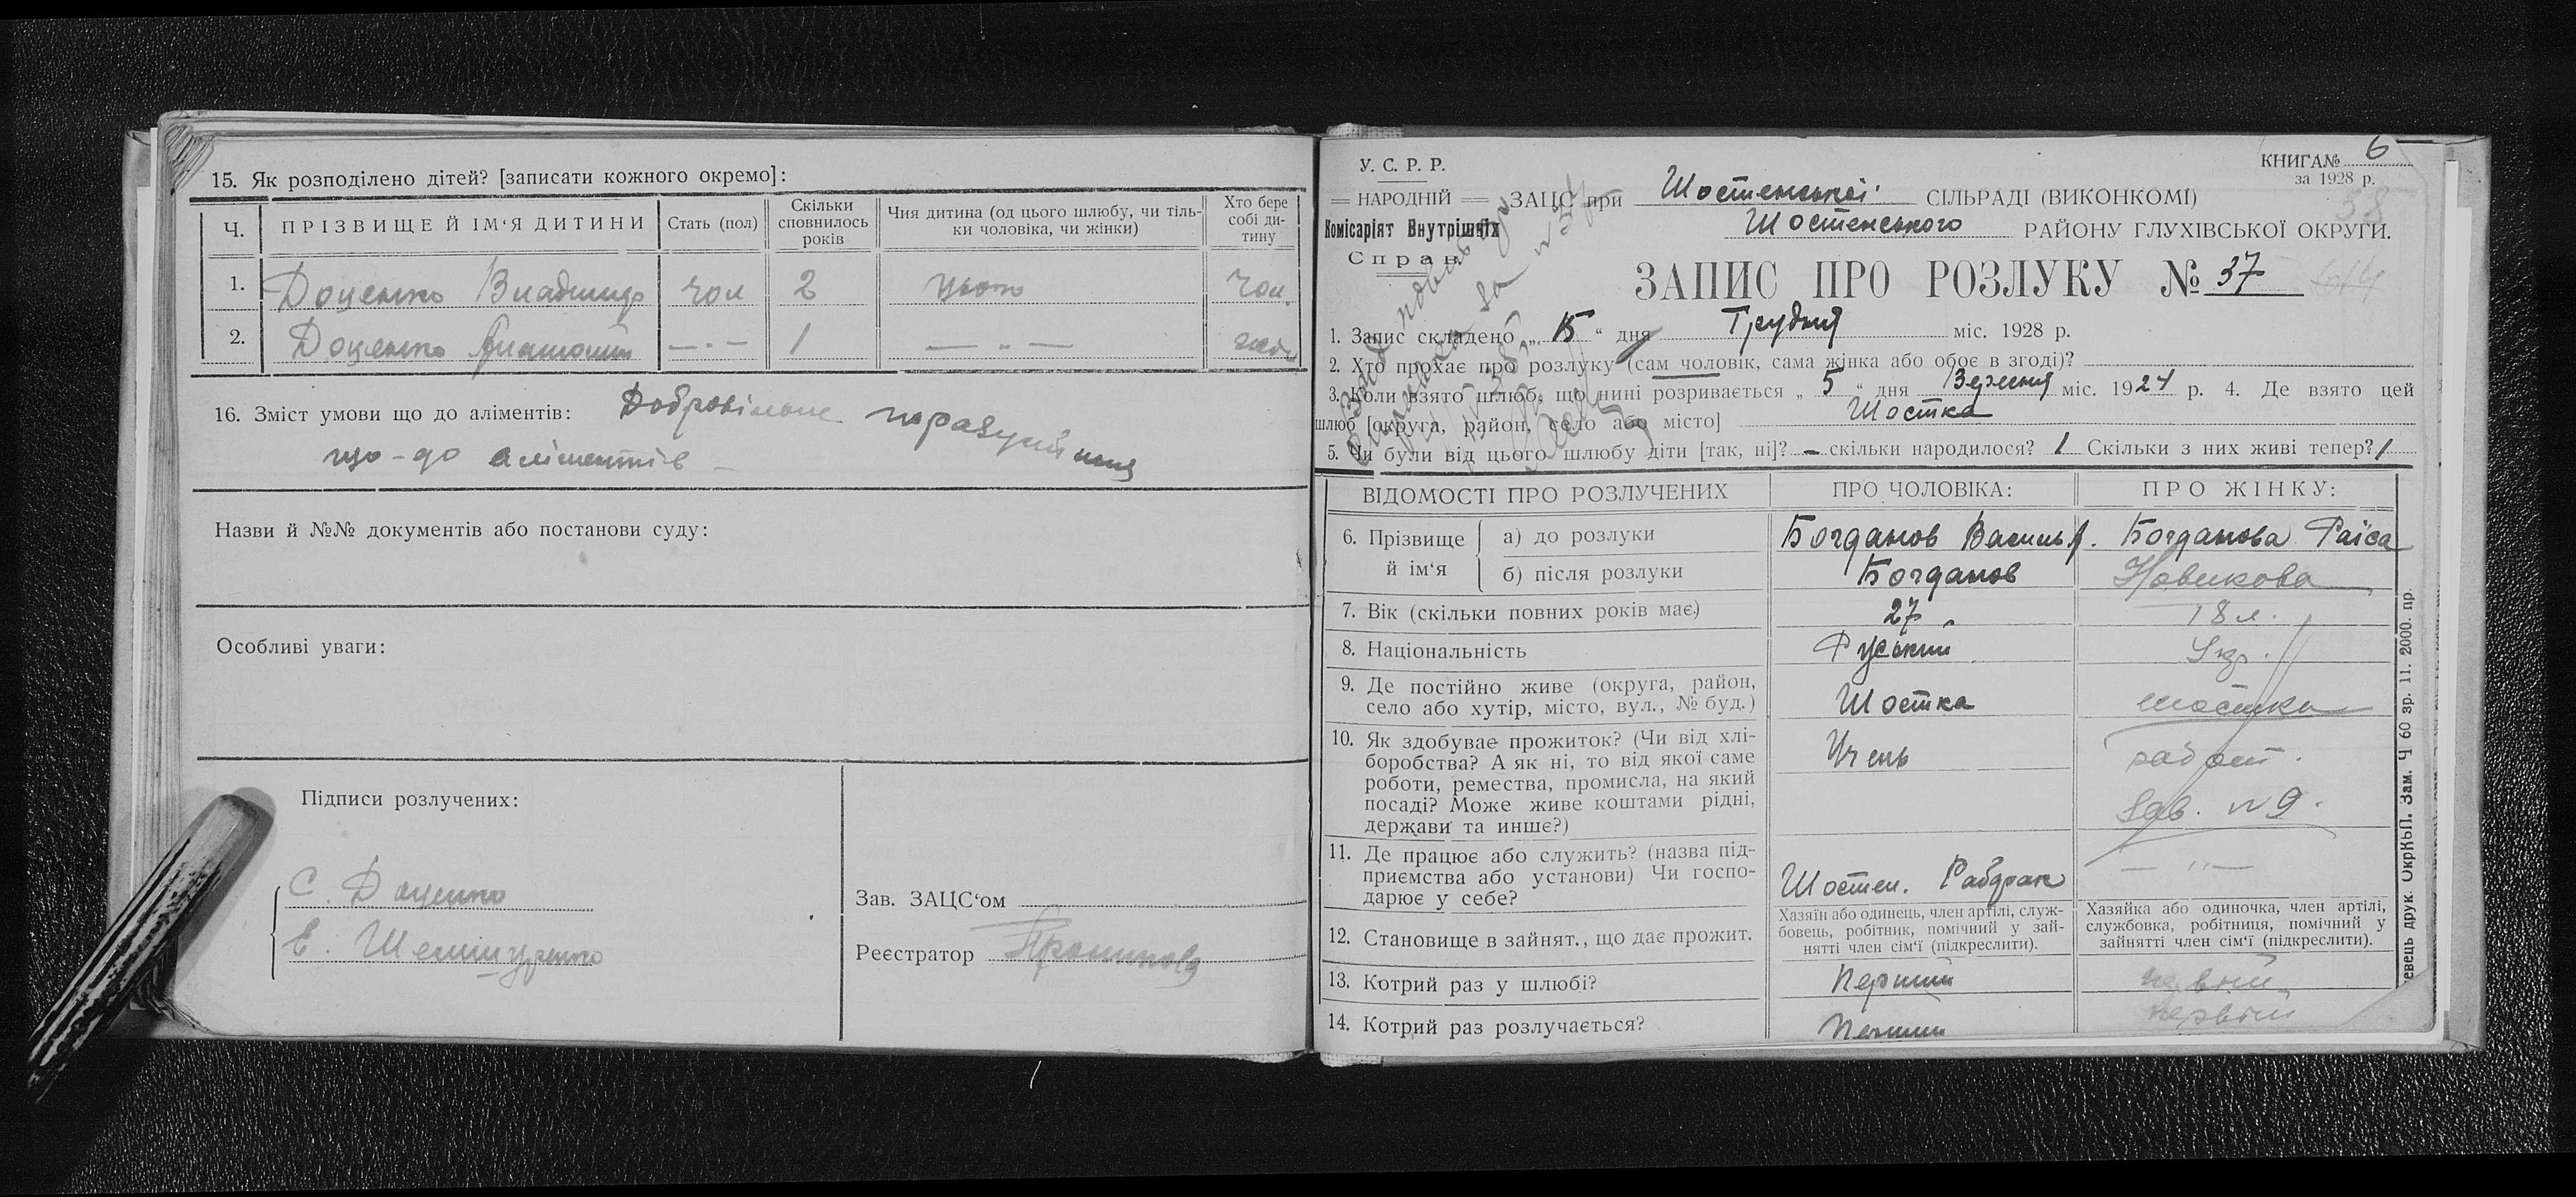 15. Як розподілено дітей? [записати кожного окремо]:
Ч. ПРІЗВИЩЕ Й ІМ‘Я ДИТИНИ Стать (пол) Скільки сповнилось років Чия дитина (од цього шлюбу, чи тільки чоловіка, чи жінки) Хто бере собі дитину
1. Доценко Владимир чол 2 цього чол.
2. Доценко Анатолий —·— 1 — „ —
16. Зміст умови що до аліментів: Добровільне
що-до аліментів —
Назви й №№ документів або постанови суду:
Особливі уваги:
Підписи розлучених:
С. Доценко
Е.
Зав. ЗАЦС‘ом
Реєстратор
У. С. Р. Р.
НАРОДНІЙ
Комісаріят Внутрішніх
Справ
КНИГА № 6
за 1928 р.
38
ЗАЦС при Шостенської СІЛЬРАДІ (ВИКОНКОМІ)
Шостенського РАЙОНУ ГЛУХІВСЬКОЇ ОКРУГИ.
ЗАПИС ПРО РОЗЛУКУ № 37
1. Запис складено „ 15 “ дня Грудня міс. 1928 р.
2. Хто прохає про розлуку (сам чоловік, сама жінка або обоє в згоді)?
3. Коли взято шлюб, що нині розривається „ 5 “ дня Вересня міс. 1927 р. 4. Де взято цей
шлюб [округа, район, село або місто] Шостка
5. Чи були від цього шлюбу діти [так, ні]? – скільки народилося? 1 Скільки з них живі тепер? 1
ВІДОМОСТІ ПРО РОЗЛУЧЕНИХ ПРО ЧОЛОВІКА: ПРО ЖІНКУ:
6. Прізвище й ім‘я а) до розлуки Богданов Василь Богданова Раїса
б) після розлуки Богданов Новикова
7. Вік (скільки повних років має) 27 18 л.
8. Національність Руський Укр.
9. Де постійно живе (округа, район,
село або хутір, місто, вул., № буд.) Шостка Шостка
10. Як здобуває прожиток? (Чи від хлі-
боробства? А як ні, то від якої саме
роботи, ремества, промисла, на який
посаді? Може живе коштами рідні,
держави та інше?) Учень работ.
Зав. №9.
11. Де працює або служить? (назва під-
приємства або установи) Чи госпо-
дарює у себе? Шостен. Рабфак — „ —
12. Становище в зайнят., що дає прожит.
Хазяїн або одинець, член артілі, служ-
бовець, робітник, помічний у зай-
нятті член сім‘ї (підкреслити).
Хазяйка або одиночка, член артілі,
службовка, робітниця, помічний у
зайнятті член сім‘ї (підкреслити).
13. Котрий раз у шлюбі? Перший первый
14. Котрий раз розлучається? Перший первый
друк. ОкрКЬП. Зам. Ч 60 зр. 11. 2000. пр.